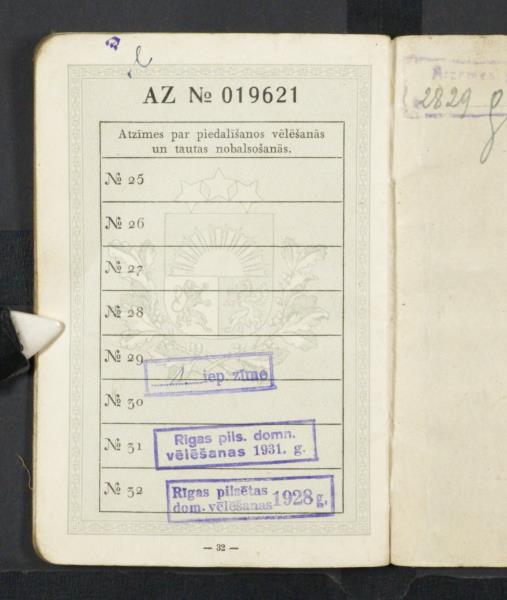 AZ № 019621
Atzīmes par piedalīšanos vēlēšanās
un tautas nobalsošanās.
№ 25
№ 26
№ 27
№ 28
№ 29
iep. zīme
№ 30
№ 31
Rīgas pils. domn.
vēlēšanas 1931. g.
№ 32
Rīgas pilsētas
dom. vēlēšanas 1928 g.
— 32 —
2829